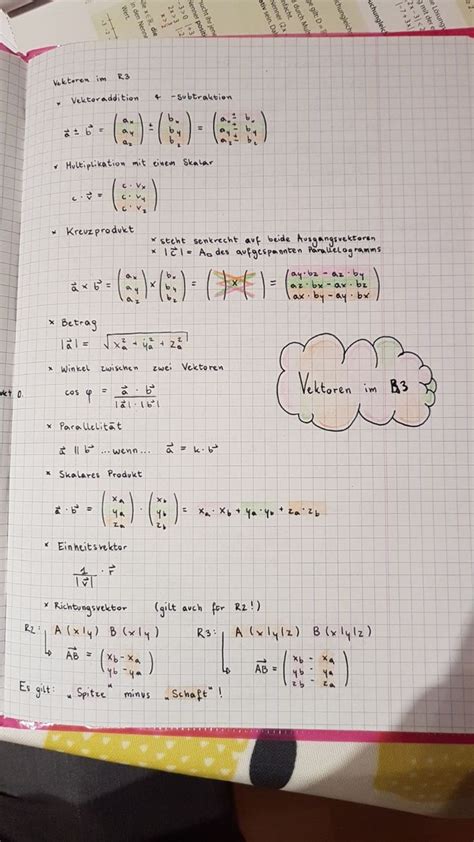 Vektoren im R3
* Vektoraddition & -subtraktion
a⃗ ± b⃗ = (ax ay az) ± (bx by bz) = (ax ± bx ay ± by az ± bz)
* Multiplikation mit einem Skalar
c · v⃗ = (c · vx c · vy c · vz)
* Kreuzprodukt
* steht senkrecht auf beide Ausgangsvektoren
* |c⃗| = A▱ des aufgespannten Parallelogramms
a⃗ × b⃗ = (ax ay az) × (bx by bz) = ( )×( ) = (ay·bz - az·by az·bx - ax·bz ax·by - ay·bx)
* Betrag
|a⃗| = √(xa² + ya² + za²)
* Winkel zwischen zwei Vektoren
cos φ = (a⃗ · b⃗) / (|a⃗| · |b⃗|)
Vektoren im R3
* Parallelität
a⃗ || b⃗ ...wenn... a⃗ = k · b⃗
* Skalares Produkt
a⃗ · b⃗ = (xa ya za) · (xb yb zb) = xa · xb + ya · yb + za · zb
* Einheitsvektor
1/|v⃗| · r⃗
* Richtungsvektor (gilt auch für R2!)
R2: A (x|y) B (x|y) R3: A (x|y|z) B (x|y|z)
↳ AB⃗ = (xb - xa yb - ya) ↳ AB⃗ = (xb - xa yb - ya zb - za)
Es gilt: „Spitze" minus „Schaft"!